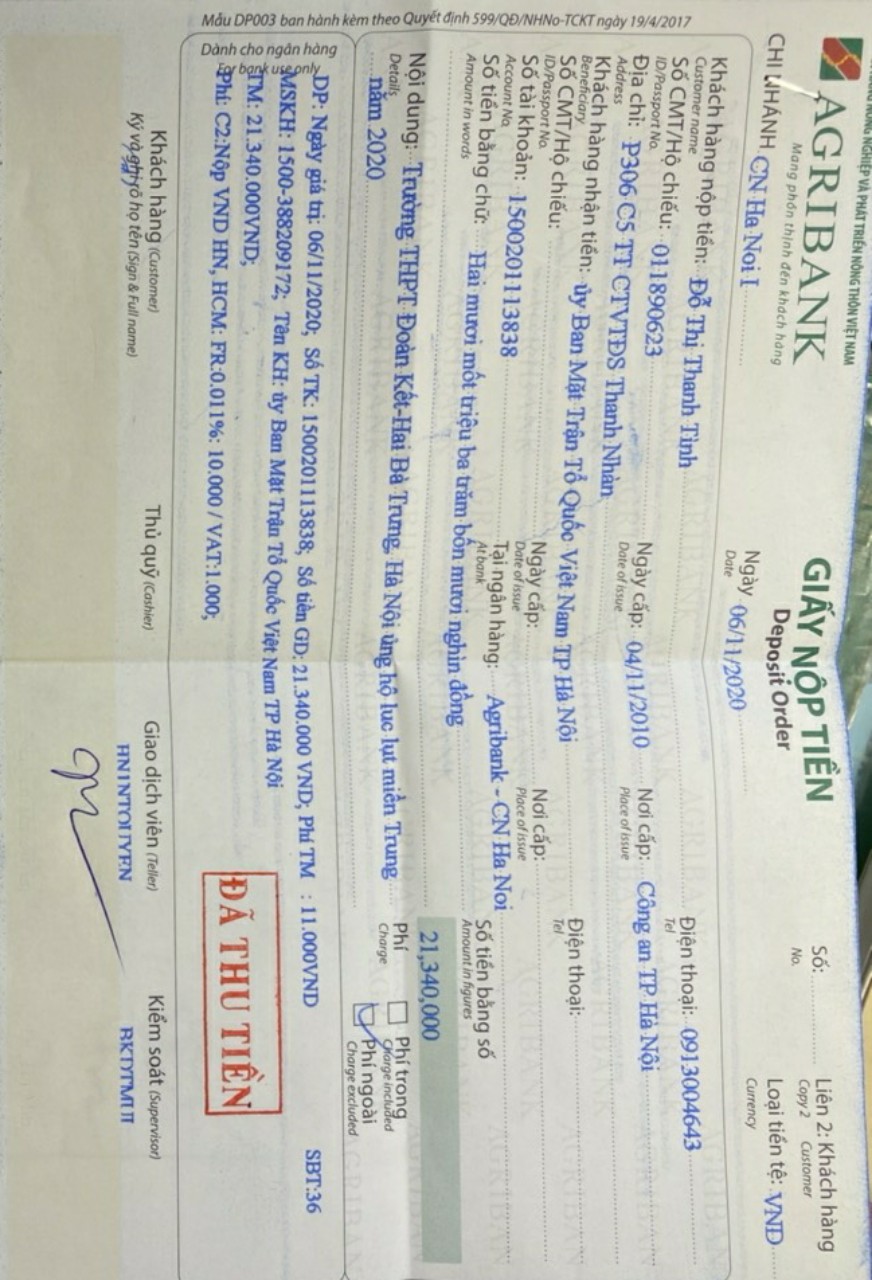 NÔNG NGHIỆP VÀ PHÁT TRIỂN NÔNG THÔN VIỆT NAM
AGRIBANK
Mang phồn thịnh đến khách hàng
CHI NHÁNH CN Ha Noi I
GIẤY NỘP TIỀN
Deposit Order
Ngày 06/11/2020
Date
Số:
No.
Liên 2: Khách hàng
Copy 2 Customer
Loại tiền tệ: VND
Currency
Khách hàng nộp tiền: Đỗ Thị Thanh Tinh Điện thoại: 0913004643
Customer name Tel
Số CMT/Hộ chiếu: 011890623 Ngày cấp: 04/11/2010 Nơi cấp: Công an TP Hà Nội
ID/Passport No. Date of issue Place of issue
Địa chỉ: P306 C5 TT CTVTĐS Thanh Nhàn
Address
Khách hàng nhận tiền: ủy Ban Mặt Trận Tổ Quốc Việt Nam TP Hà Nội Điện thoại:
Beneficiary Tel
Số CMT/Hộ chiếu: Ngày cấp: Nơi cấp:
ID/Passport No. Date of issue Place of issue
Số tài khoản: 1500201113838 Tại ngân hàng: Agribank - CN Ha Noi
Account No. At bank
Số tiền bằng chữ: Hai mươi mốt triệu ba trăm bốn mươi nghìn đồng Số tiền bằng số
Amount in words Amount in figures
21,340,000
Nội dung: Trường THPT Đoàn Kết-Hai Bà Trưng, Hà Nội ủng hộ luc lụt miền Trung
Details năm 2020
Phí Phí trong
Charge Charge included
Phí ngoài
Charge excluded
Dành cho ngân hàng
For bank use only
DP: Ngày giá trị: 06/11/2020; Số TK: 1500201113838; Số tiền GD: 21.340.000 VND; Phí TM : 11.000VND SBT:36
MSKH: 1500-388209172; Tên KH: ủy Ban Mặt Trận Tổ Quốc Việt Nam TP Hà Nội
TM: 21.340.000VND;
Phí: C2:Nộp VND HN, HCM: FR:0.011%: 10.000 / VAT:1.000;
ĐÃ THU TIỀN
Khách hàng (Customer) Thủ quỹ (Cashier) Giao dịch viên (Teller) Kiểm soát (Supervisor)
Ký và ghi rõ họ tên (Sign & Full name)
HN1NTOUYEN
Mẫu DP003 ban hành kèm theo Quyết định 599/QĐ/NHNo-TCKT ngày 19/4/2017